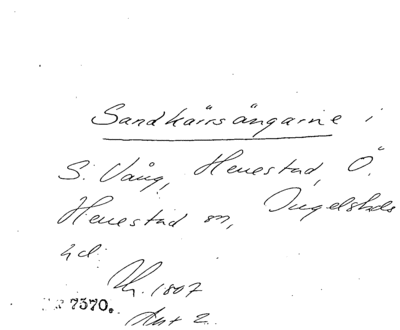 Sandkärrsängarne i
S. Vång, Henestad, Ö.
Henestad sn, Ingelstads
hd.
1807
7370.
2